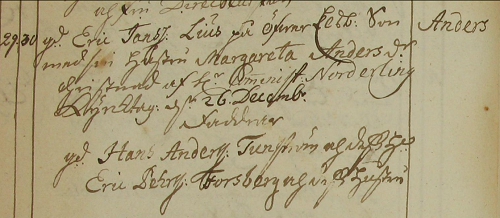 29. 30 gd. Eric Jans: Lius på Öfwer Ledb: Son Anders
med sin Hustru Margareta Anders dr.
christnad af hr. Comminist. Norderling
Kyrktag: d. 26 Decemb.
Faddrar
gd. Hans Anderss: Tunström och
Eric Pehrss: Forsberg och Hustru